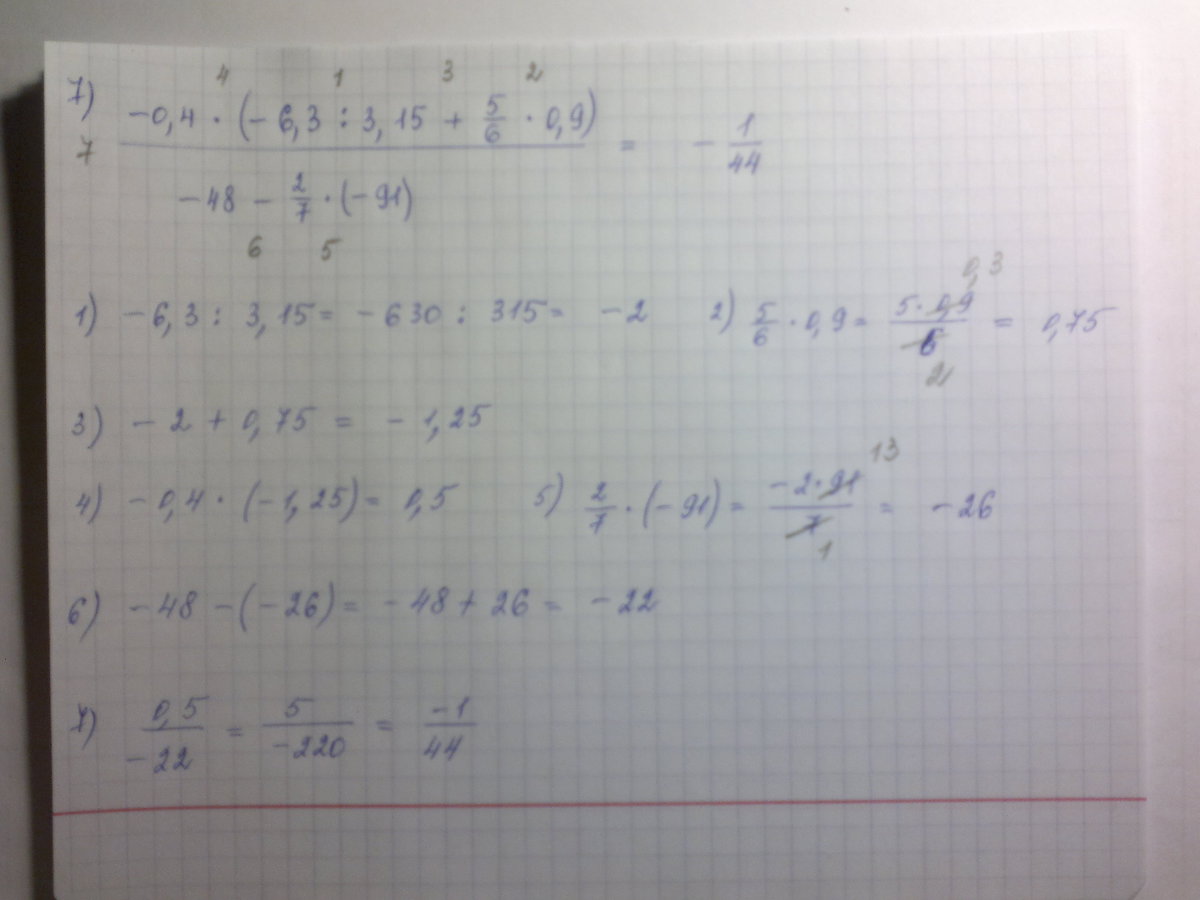 4 1 3 2
7) -0,4 · (-6,3 : 3,15 + 5/6 · 0,9) = - 1/44
7
-48 - 2/7 · (-91)
6 5
1) -6,3 : 3,15 = -630 : 315 = -2 2) 5/6 · 0,9 = 5 · 0,9/6 = 0,75
0,3
2
3) -2 + 0,75 = -1,25
4) -0,4 · (-1,25) = 0,5 5) 2/7 · (-91) = -2 · 91/7 = -26
13
1
6) -48 - (-26) = -48 + 26 = -22
7) 0,5/-22 = 5/-220 = -1/44